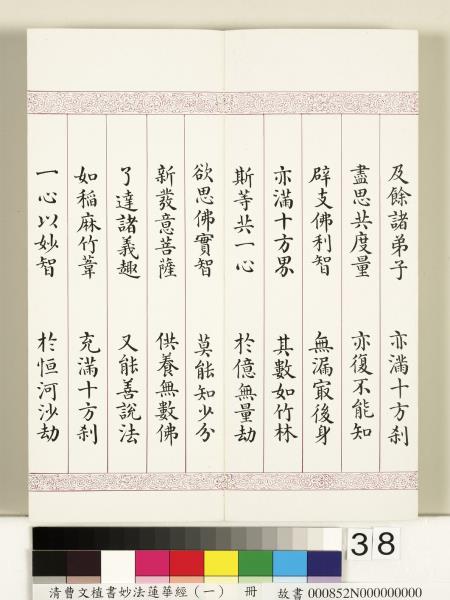 及餘諸弟子 亦滿十方刹
盡思共度量 亦復不能知
辟支佛利智 無漏㝡後身
亦滿十方界 其數如竹林
斯等共一心 於億無量劫
欲思佛實智 莫能知少分
新發意菩薩 供養無數佛
了達諸義趣 又能善說法
如稻麻竹葦 充滿十方刹
一心以妙智 於恒河沙劫
38
清曹文植書妙法蓮華經(一) 冊 故書 000852N000000000